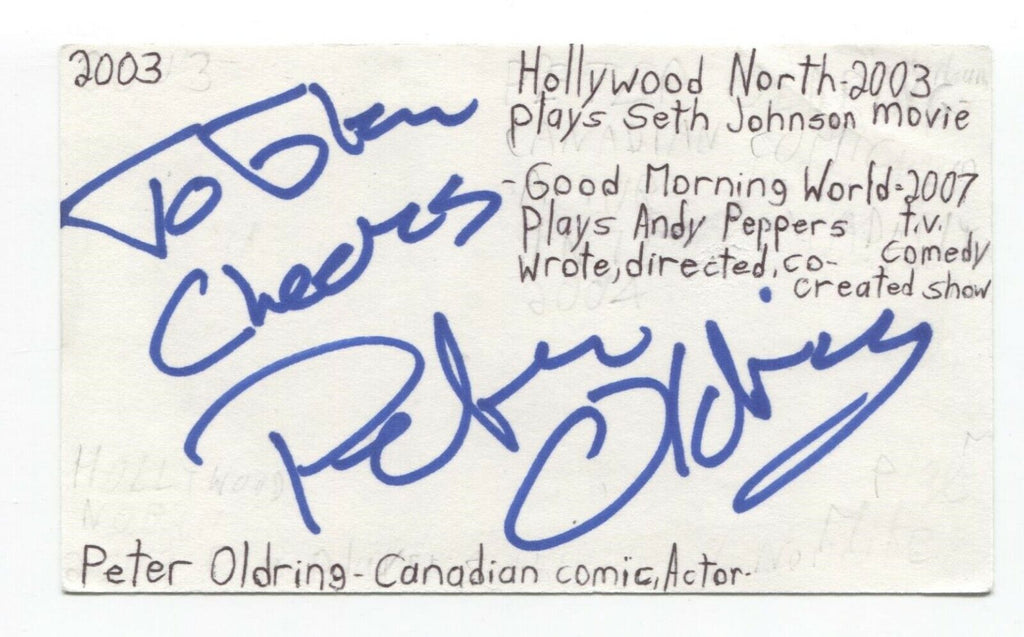 2003
Hollywood North-2003
plays Seth Johnson movie
-Good Morning World-2007
Plays Andy Peppers t.v.
wrote, directed, co- comedy
created show
To Glen
Cheers
Peter Oldring
Peter Oldring-Canadian comic, Actor-